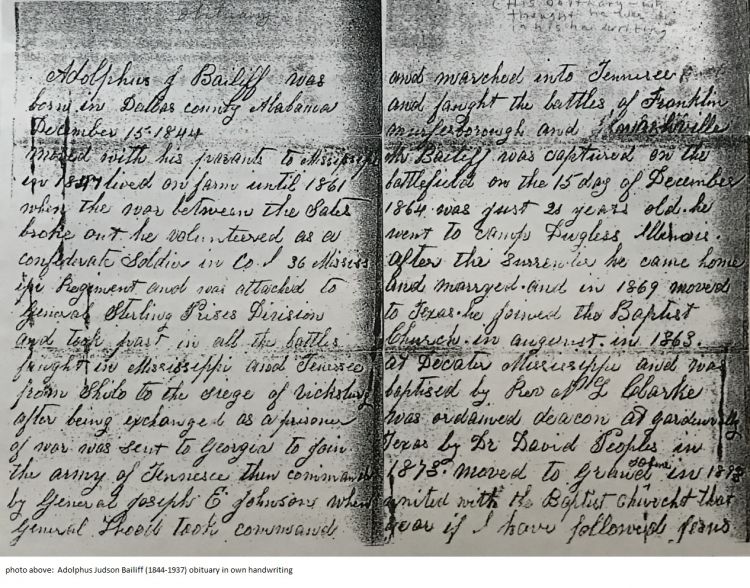 obituary
Adolphus J Bailiff was
born in Dallas county Alabama
December 15 1844
moved with his parants to Mississippi
in lived on farm until 1861
when the war between the Sates
broke out he volunteered as a
confederate Soldier in Co I 36 Mississ
ipi Regiment and was attached to
General Sterling Prises Division
and took part in all the battles
fought in Mississippi and Tenesee
from Shilo to the seege of Vicksburg
after being exchanged as a prisoner
of war was sent to Georgia to join
the army of Tennesee then command
by General Joseph E Johnsons when
General Hood took command
(His obituary
thought he was
in his handwriting
and marched into Tennesee
and faught the battles of Franklin
murfesborough and Nashville
Mr Bailiff was captured on the
battlefield on the 15 day of December
1864 was just 20 years old. he
went to camp Dugless Illinois.
after the surrender he came home
and marryed. and in 1869 moved
to Texas. he joined the Baptist
Church. in augurst. in 1863.
at Decater Mississippi and was
baptised by Rev N L Clarke
was ordained deacon at
Texas by Dr David Peoples in
1878. moved to in 1893
united with the Baptist church that
year if I have followed
photo above: Adolphus Judson Bailiff (1844-1937) obituary in own handwriting